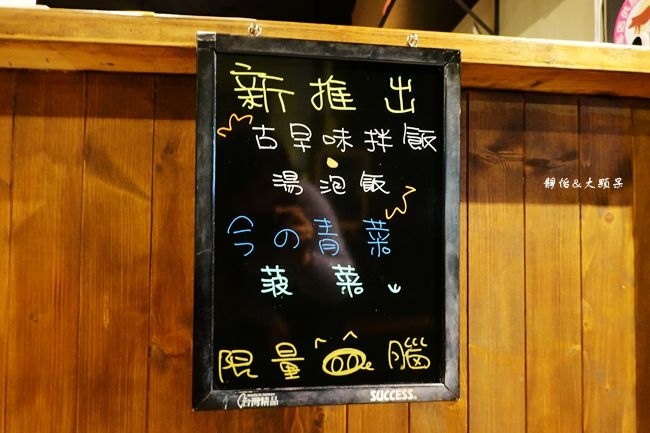 新推出
古早味拌飯
湯泡飯
今の青菜
菠菜
限量 腦
台灣精品 SUCCESS.
靜怡&大顆呆